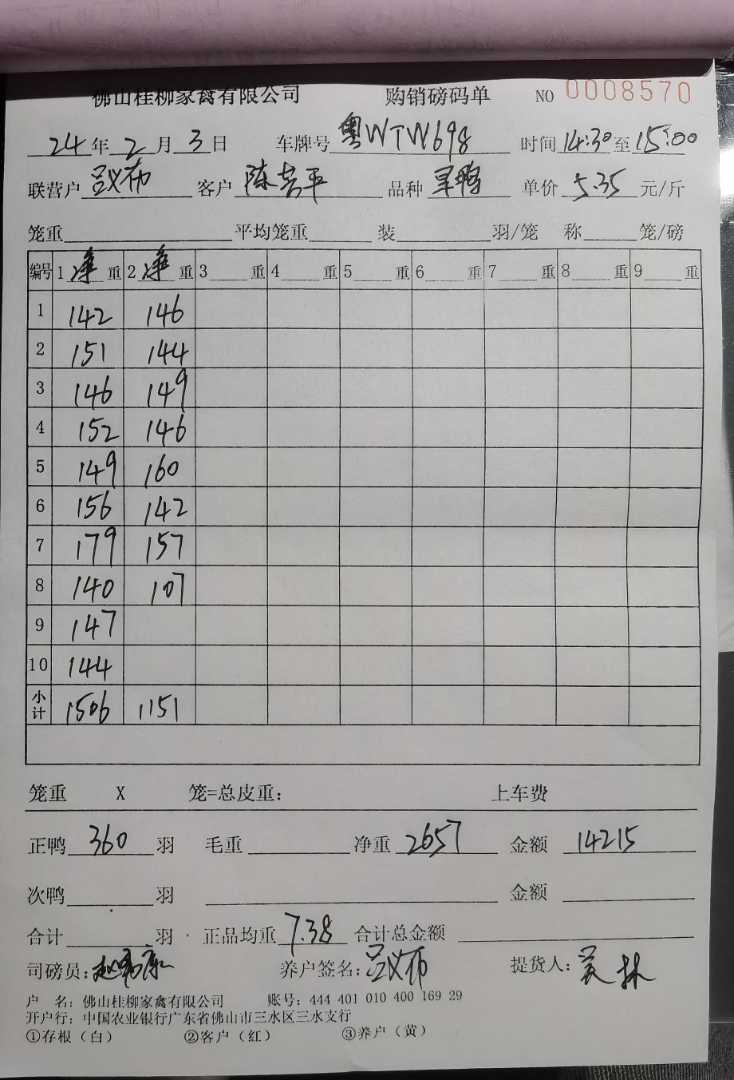 佛山桂柳家禽有限公司 购销磅码单 NO 0008570
24年2月3日 车牌号 粤WTW698 时间14:30至15:00
联营户 吕义布 客户 陈善平 品种 旱鸭 单价 5.35 元/斤
笼重 平均笼重 装 羽/笼 称 笼/磅
编号 1 净 重 2 净 重 3 重 4 重 5 重 6 重 7 重 8 重 9 重
1 142 146
2 151 144
3 146 149
4 152 146
5 149 160
6 156 142
7 179 157
8 140 107
9 147
10 144
小计 1506 1151
笼重 X 笼=总皮重： 上车费
正鸭 360 羽 毛重 净重 2657 金额 14215
次鸭 羽 金额
合计 羽 正品均重 7.38 合计总金额
司磅员： 养户签名：吕义布 提货人：吴林
户 名：佛山桂柳家禽有限公司 账号：444 401 010 400 169 29
开户行：中国农业银行广东省佛山市三水区三水支行
①存根（白） ②客户（红） ③养户（黄）